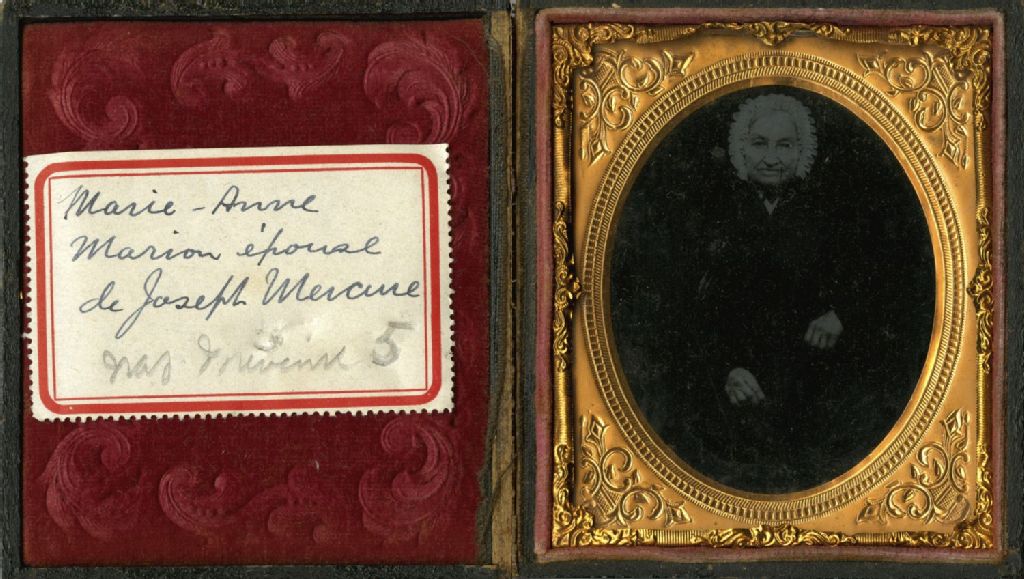 Marie-Anne
Marion épouse
de Joseph Mercure
5